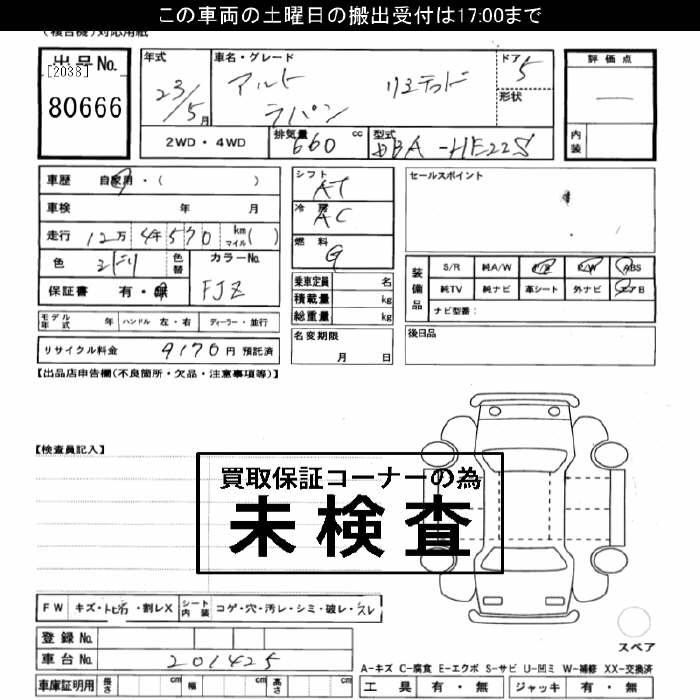 この車両の土曜日の搬出受付は17:00まで
(複合機)対応用紙
出品No.
[2038]
80666
年式
23/5月
車名・グレード
アルト
ラパン
リミテッド
ドア
5
形状
2WD・4WD
排気量
660 cc
型式
DBA-HE22S
評価点
―
内装
車歴 自家用・( )
車検 年 月
走行 12万 4千 5 7 0 km マイル( )
色 ミドリ 色替 カラーNo.
保証書 有・無 FJZ
モデル年式 年 ハンドル 左・右 ディーラー・並行
リサイクル料金 9170 円 預託済
シフト
AT
冷房
AC
燃料
G
乗車定員 名
積載量 kg
総重量 kg
名変期限
月 日
セールスポイント
装備品
S/R 純A/W P/S P/W ABS
純TV 純ナビ 革シート 外ナビ エアB
ナビ型番:
後日品
【出品店申告欄(不良箇所・欠品・注意事項等)】
【検査員記入】
買取保証コーナーの為
未検査
FW キズ・トビ石・割レX シート内装 コゲ・穴・汚レ・シミ・破レ・スレ
登録No.
車台No. 201425
車庫証明用 長さ cm 幅 cm 高さ cm
スペア
A-キズ C-腐食 E-エクボ S-サビ U-凹ミ W-補修 XX-交換済
工具 有・無 ジャッキ 有・無